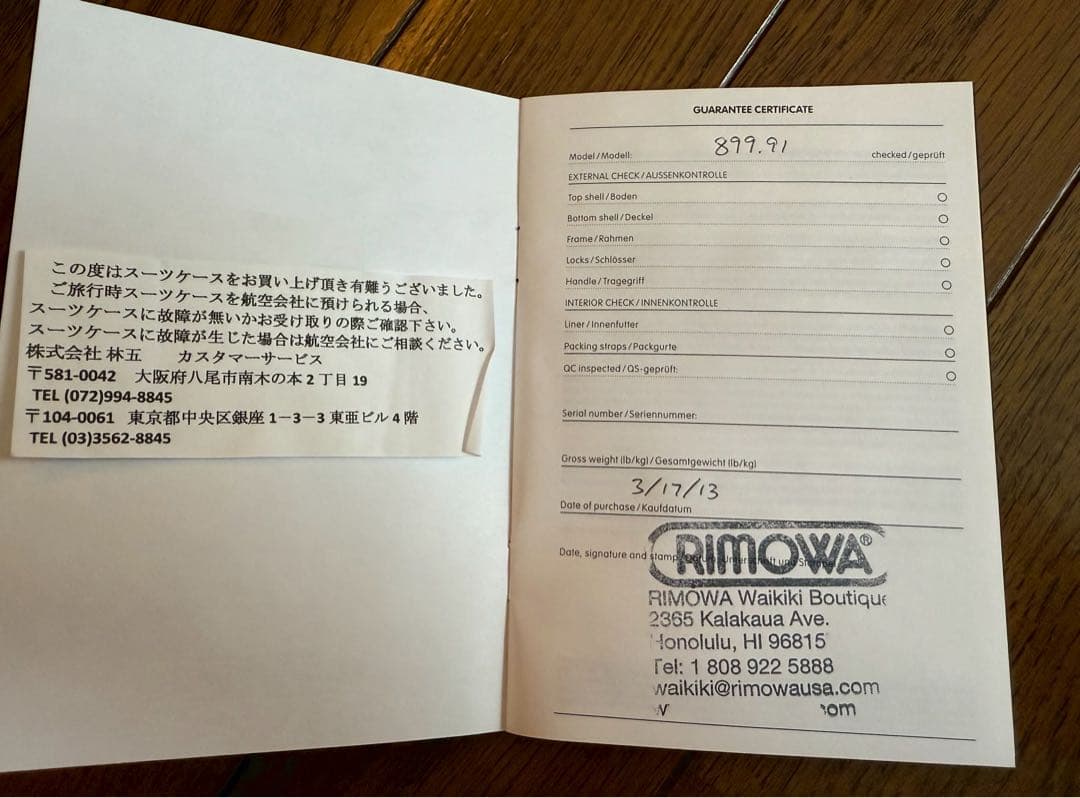 この度はスーツケースをお買い上げ頂き有難うございました。
ご旅行時スーツケースを航空会社に預けられる場合、
スーツケースに故障が無いかお受け取りの際ご確認下さい。
スーツケースに故障が生じた場合は航空会社にご相談ください。
株式会社 林五　カスタマーサービス
〒581-0042　大阪府八尾市南木の本2丁目19
TEL (072)994-8845
〒104-0061　東京都中央区銀座1－3－3 東亜ビル4階
TEL (03)3562-8845
GUARANTEE CERTIFICATE
Model/Modell: 899.91 checked/geprüft
EXTERNAL CHECK/AUSSENKONTROLLE
Top shell/Boden
Bottom shell/Deckel
Frame/Rahmen
Locks/Schlösser
Handle/Tragegriff
INTERIOR CHECK/INNENKONTROLLE
Liner/Innenfutter
Packing straps/Packgurte
QC inspected/QS-geprüft:
Serial number/Seriennummer:
Gross weight (lb/kg)/Gesamtgewicht (lb/kg)
3/17/13
Date of purchase/Kaufdatum
Date, signature and stamp
RIMOWA®
RIMOWA Waikiki Boutique
2365 Kalakaua Ave.
Honolulu, HI 96815
Tel: 1 808 922 5888
waikiki@rimowausa.com